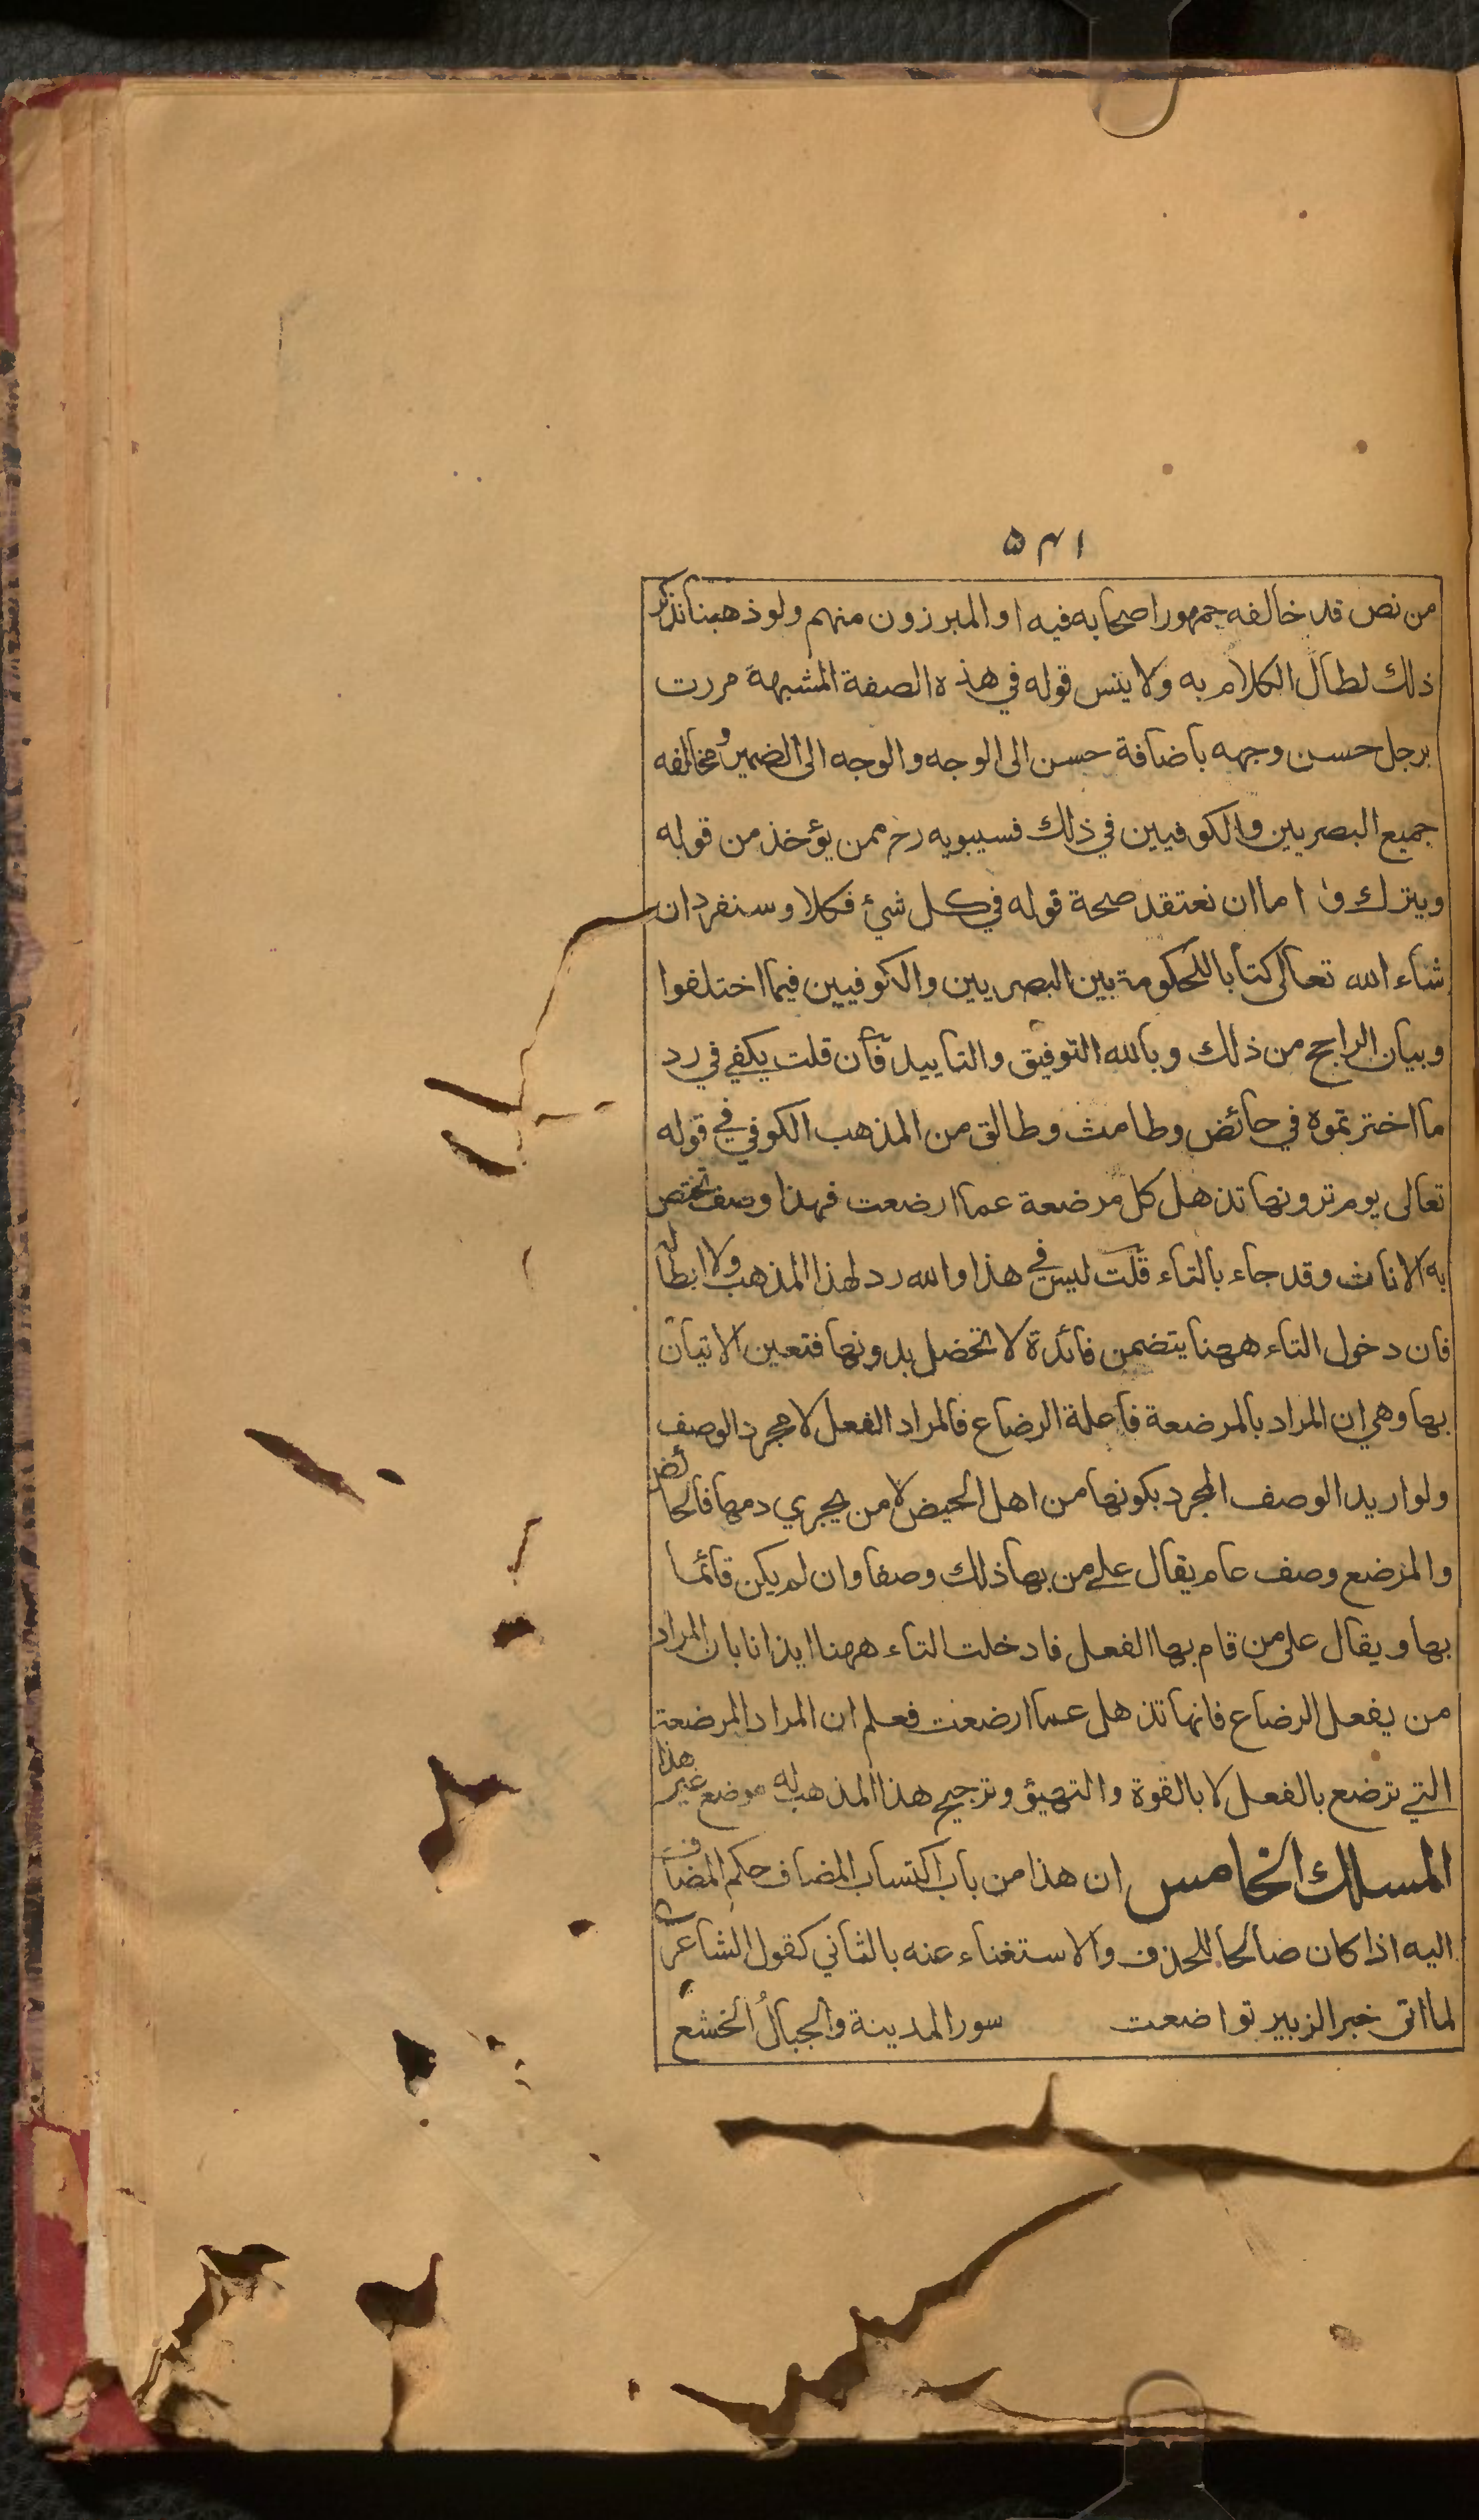 ۵۴۱
من نص قد خالفه جمهور اصحابه فيه او المبرزون منهم ولو ذهبنا نذكر
ذلك لطال الكلام به ولا ينس قوله في هذه الصفة المشبهة مررت
برجل حسن وجهه باضافة حسن الى الوجه والوجه الى الضمير ومخالفه
جميع البصريين والكوفيين في ذلك فسيبويه رح ممن يؤخذ من قوله
ويترك واما ان نعتقد صحة قوله في كل شيء فكلا وسنفرد ان
شاء الله تعالى كتابا للحكومة بين البصريين والكوفيين فيما اختلفوا
وبيان الراجح من ذلك وبالله التوفيق والتاييد فان قلت يكفي في رد
ما اخترتموه في حائض وطامث وطالق من المذهب الكوفي في قوله
تعالى يوم ترونها تذهل كل مرضعة عما ارضعت فهذا وصف تختص
به الاناث وقد جاء بالتاء قلت ليس في هذا والله رد لهذا المذهب ولا ابطال له
فان دخول التاء ههنا يتضمن فائدة لا تحصل بدونها فتعين الاتيان
بها وهي ان المراد بالمرضعة فاعلة الرضاع فالمراد الفعل لا مجرد الوصف
ولو اريد الوصف المجرد بكونها من اهل الحيض لا من يجري دمها فالحائض
والمرضع وصف عام يقال على من بها ذلك وصفا وان لم يكن قائما
بها ويقال على من قام بها الفعل فادخلت التاء ههنا ايذانا بان المراد
من يفعل الرضاع فانها تذهل عما ارضعت فعلم ان المراد المرضعة
التي ترضع بالفعل لا بالقوة والتهيؤ وترجيح هذا المذهب له موضع غير هذا
المسلك الخامس ان هذا من باب اكتساب المضاف حكم المضاف
اليه اذا كان صالحا للحذف والاستغناء عنه بالثاني كقول الشاعر
لما اتى خبر الزبير تواضعت سور المدينة والجبالُ الخشع